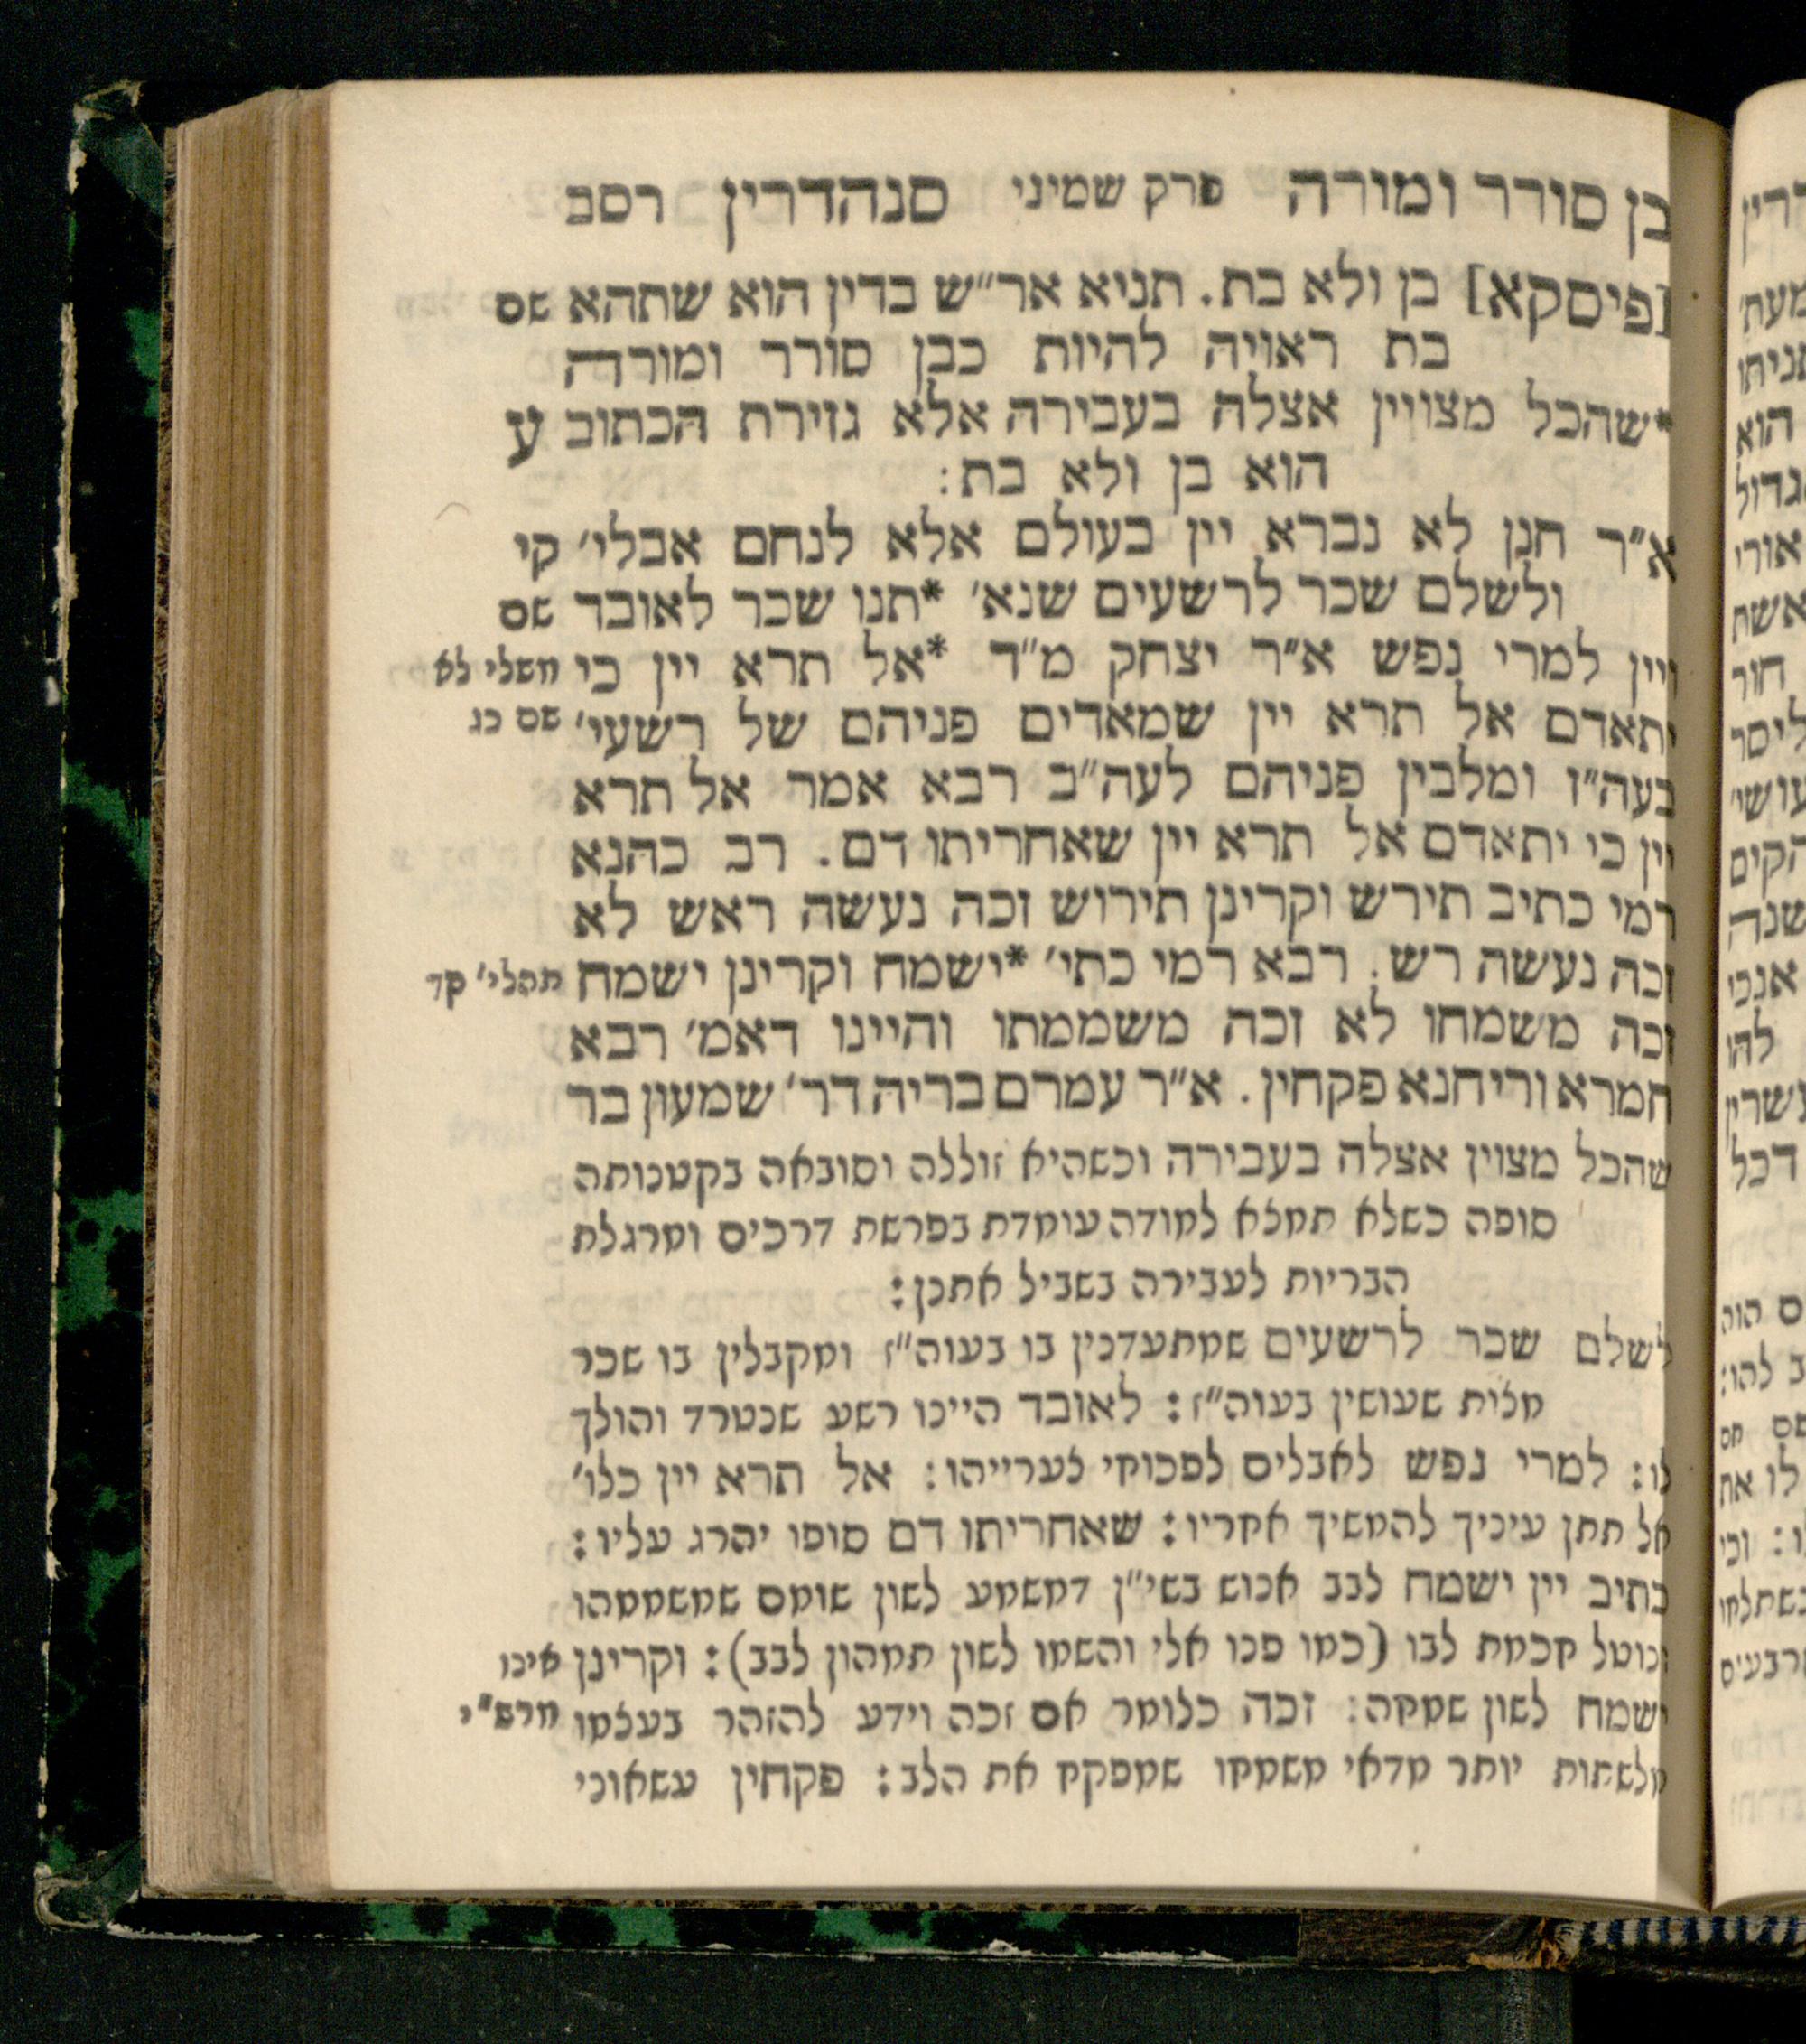 בן סורר ומורה פרק שמיני סנהדרין רסב
[פיסקא] בן ולא בת. תניא אר״ש בדין הוא שתהא שם
בת ראויה להיות כבן סורר ומורה
*שהכל מצויין אצלה בעבירה אלא גזירת הכתוב ע
הוא בן ולא בת:
א״ר חנן לא נברא יין בעולם אלא לנחם אבלי׳ קי
ולשלם שכר לרשעים שנא׳ *תנו שכר לאובד שם
ויין למרי נפש א״ר יצחק מ״ד *אל תרא יין כי משלי לא
יתאדם אל תרא יין שמאדים פניהם של רשעי׳ שם כג
בעה״ז ומלבין פניהם לעה״ב רבא אמר אל תרא
יין כי יתאדם אל תרא יין שאחריתו דם. רב כהנא
רמי כתיב תירש וקרינן תירוש זכה נעשה ראש לא
זכה נעשה רש. רבא רמי כתי׳ *ישמח וקרינן ישמח תהלי׳ קד
זכה משמחו לא זכה משממתו והיינו דאמ׳ רבא
חמרא וריחנא פקחין. א״ר עמרם בריה דר׳ שמעון בר
שהכל מצוין אצלה בעבירה וכשהיא זוללה וסובאה בקטנותה
סופה כשלא תמצא למודה עומדת בפרשת דרכים ומרגלת
הבריות לעבירה בשביל אתנן:
לשלם שכר לרשעים שמתעדנין בו בעוה״ז ומקבלין בו שכר
מצות שעושין בעוה״ז: לאובד היינו רשע שנטרד והולך
לו: למרי נפש לאבלים לפכוחי צערייהו: אל תרא יין כלו׳
אל תתן עיניך להמשיך אחריו: שאחריתו דם סופו יהרג עליו:
כתיב יין ישמח לבב אנוש בשי״ן דמשמע לשון שומם שמשממהו
ונוטל חכמת לבו (כמו פנו אלי והשמו לשון תמהון לבב): וקרינן אינו
ישמח לשון שמחה: זכה כלומר אם זכה וידע להזהר בעצמו מרש״י
מלשתות יותר מדאי משמחו שמפקח את הלב: פקחין עשאוני